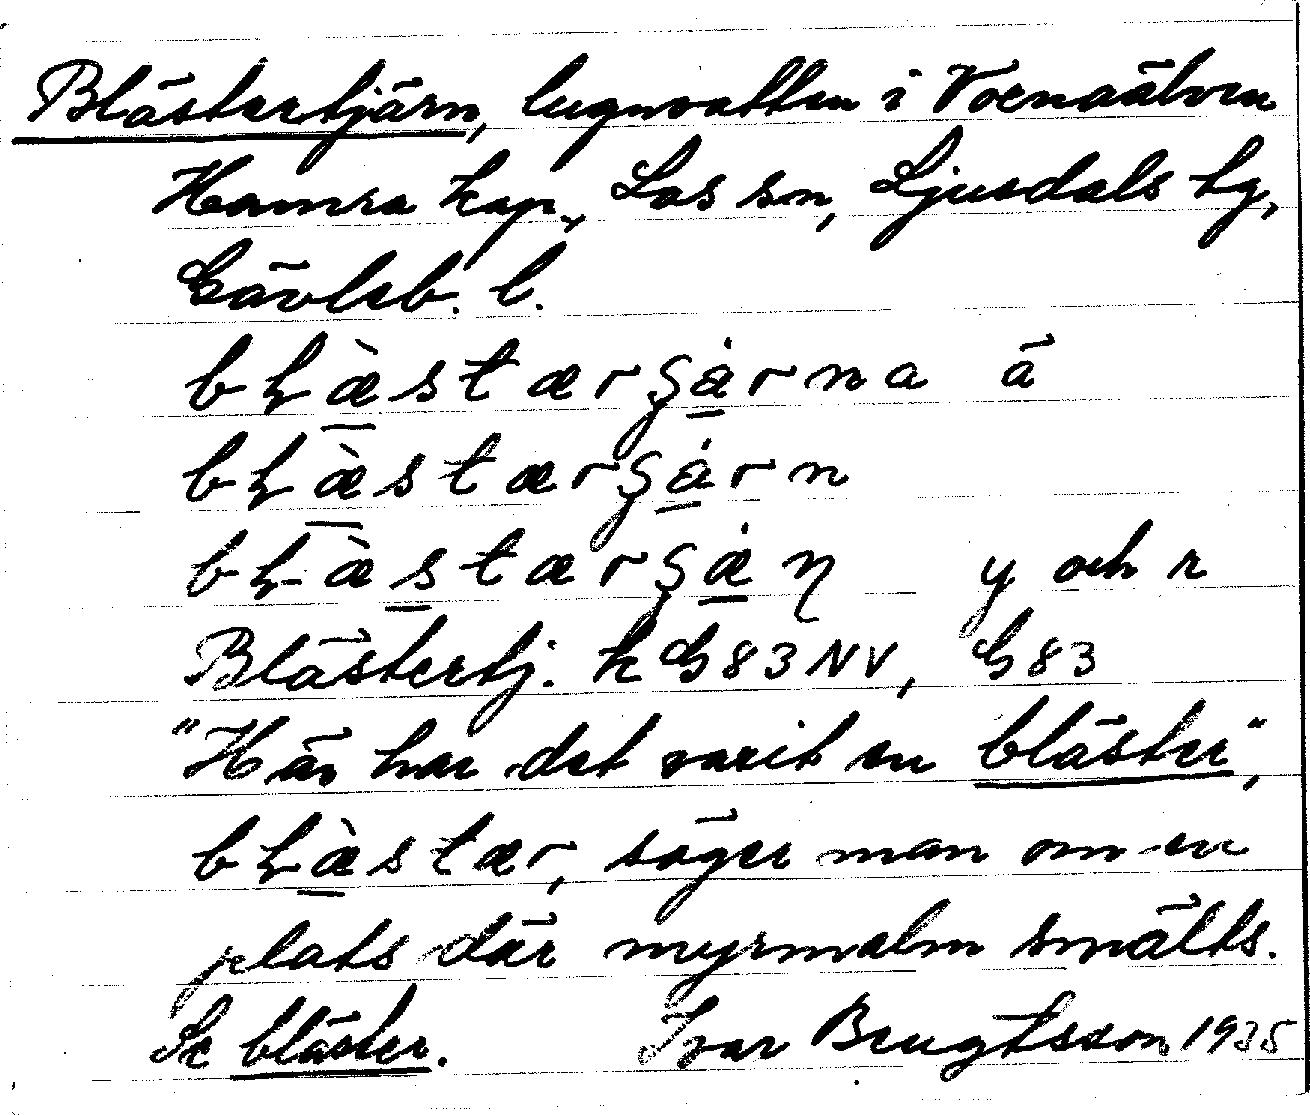 Blästertjärn, lugnvatten i Voxnaälven
Hamra kap., Los sn, Ljusdals tg,
Gävleb. l.
bḷæ̀stærʂȧrna å
bḷæ̀stærʂȧrn
bḷæ̀stærʂæ̇ɳ y och r
Blästertj. k G83NV, G83
"Här har det varit en bläster",
bḷæ̀stær, säger man om en
plats där myrmalm smälts.
Se bläster. Ivar Bengtsson 1935